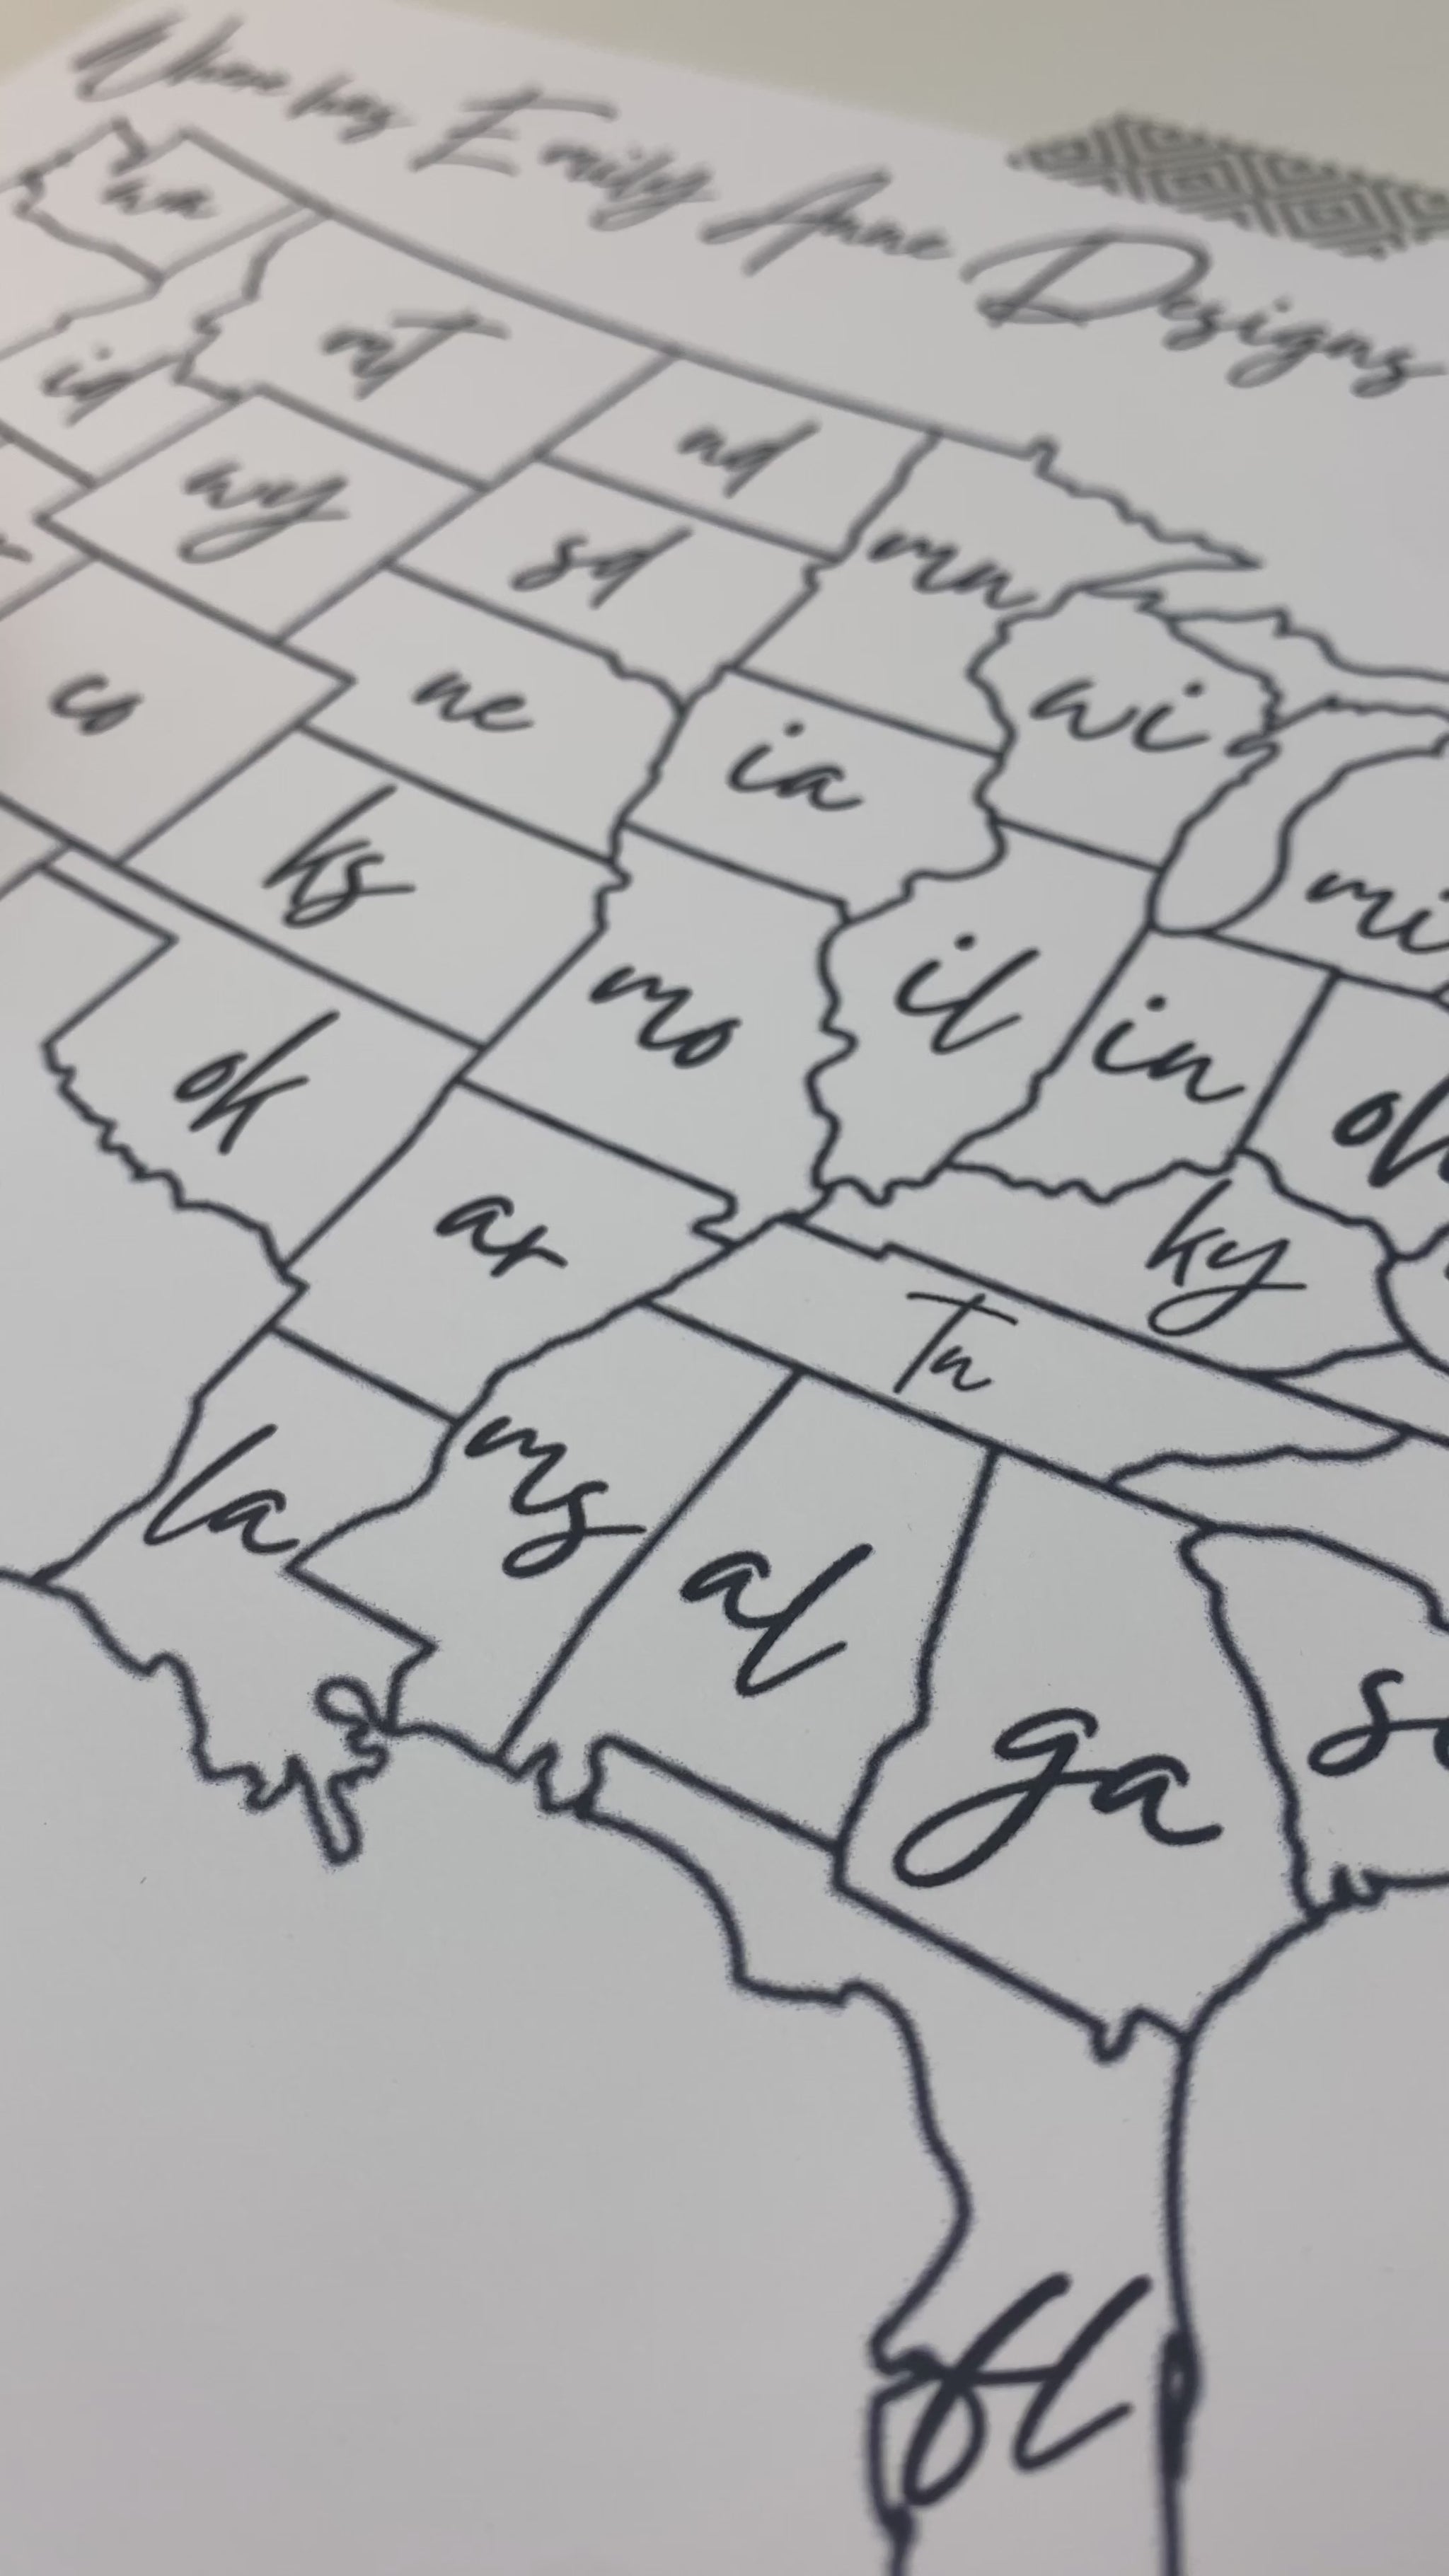 Where has Emily Anne Designs
wa
mt
id
nd
wy
mn
sd
wi
ne
co
ia
mi
ks
il
mo
in
ok
oh
ar
ky
Tn
la
ms
al
ga
fl